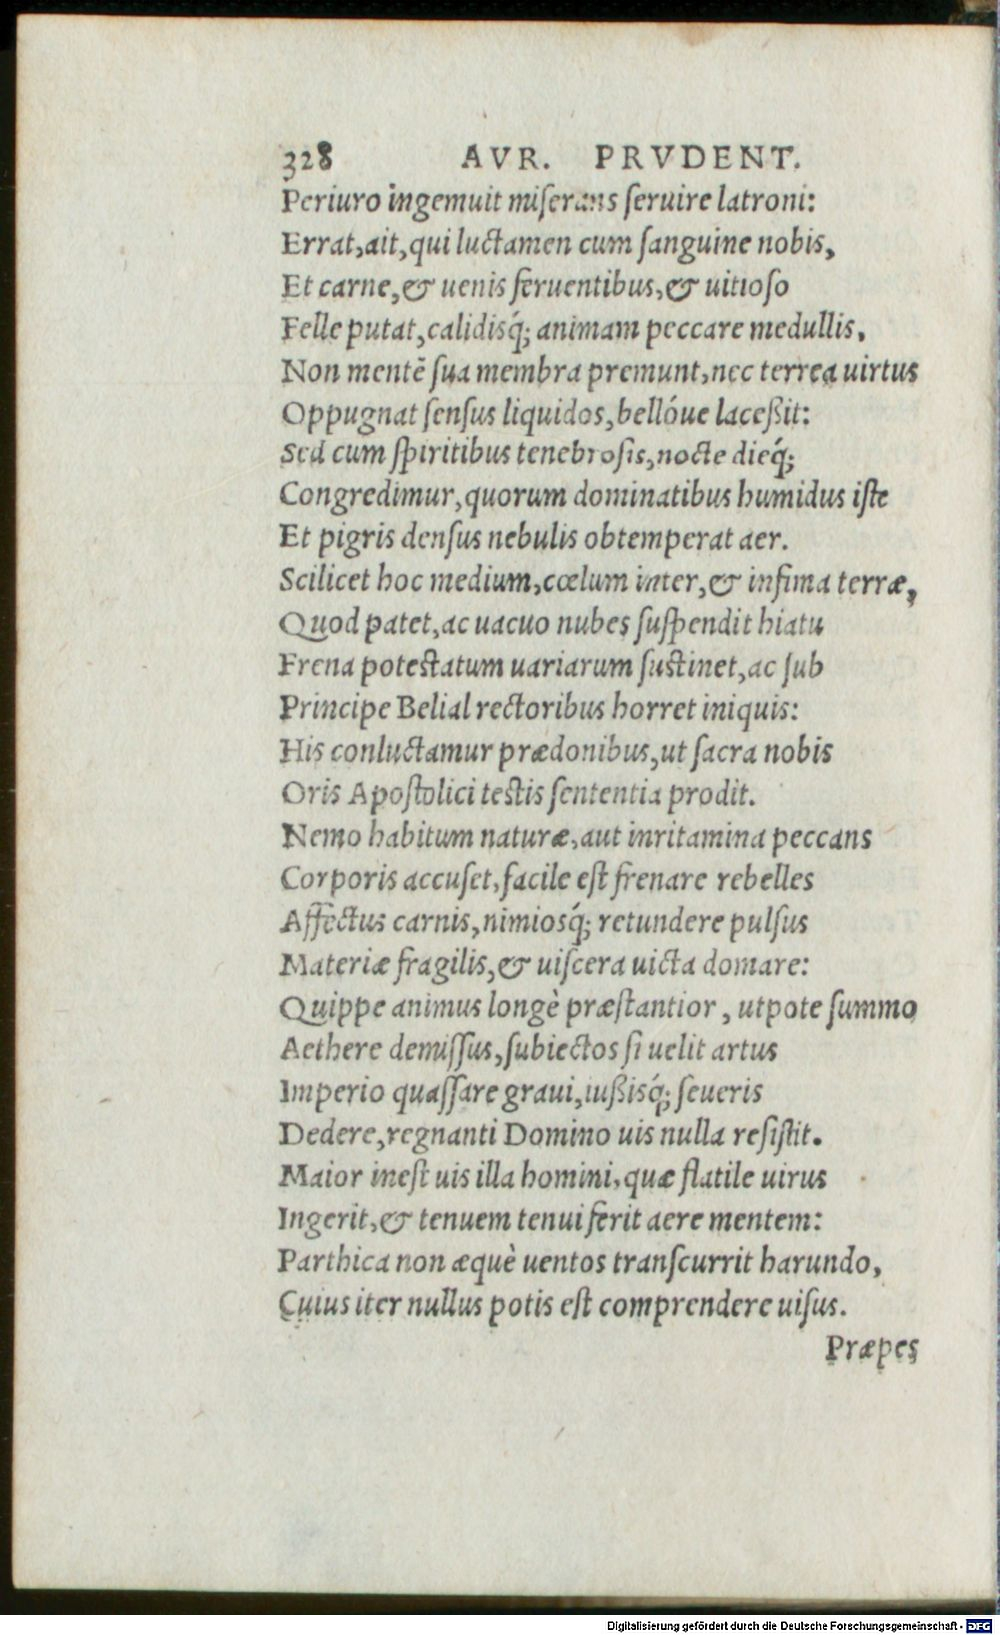 328 AVR. PRVDENT.
Periuro ingemuit miſerans ſeruire latroni:
Errat,ait,qui luctamen cum ſanguine nobis,
Et carne,& uenis feruentibus,& uitioſo
Felle putat,calidisq́; animam peccare medullis.
Non mentē ſua membra premunt,nec terrea uirtus
Oppugnat ſenſus liquidos,bellóue laceßit:
Sed cum ſpiritibus tenebroſis,nocte dieq́;
Congredimur,quorum dominatibus humidus iſte
Et pigris denſus nebulis obtemperat aer.
Scilicet hoc medium,cœlum inter,& infima terræ,
Quod patet,ac uacuo nubes ſuſpendit hiatu
Frena poteſtatum uariarum ſuſtinet,ac ſub
Principe Belial rectoribus horret iniquis:
His conluctamur prædonibus,ut ſacra nobis
Oris Apoſtolici teſtis ſententia prodit.
Nemo habitum naturæ,aut inritamina peccans
Corporis accuſet,facile eſt frenare rebelles
Affectus carnis,nimiosq́; retundere pulſus
Materiæ fragilis,& uiſcera uicta domare:
Quippe animus longè præſtantior, utpote ſummo
Aethere demiſſus,ſubiectos ſi uelit artus
Imperio quaſſare graui,iußisq́; ſeueris
Dedere,regnanti Domino uis nulla reſiſtit.
Maior ineſt uis illa homini,quæ flatile uirus
Ingerit,& tenuem tenui ferit aere mentem:
Parthica non æquè uentos tranſcurrit harundo,
Cuius iter nullus potis eſt comprendere uiſus.
Præpes
Digitalisierung gefördert durch die Deutsche Forschungsgemeinschaft - DFG